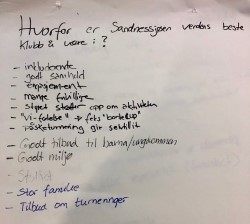 Hvorfor er Sandnessjøen verdens beste
Klubb å være i?
- inkluderende
- godt samhold
- engasjement
- mange frivillige
- slipet opp om aktiviteten
- "Vi-følelse" → feks "bortetrip"
- Påsketurnering gir selvtillit
- Godt tilbud til barna/ungdommen
- Godt miljø
- Stor familie
- Tilbud om turneringer